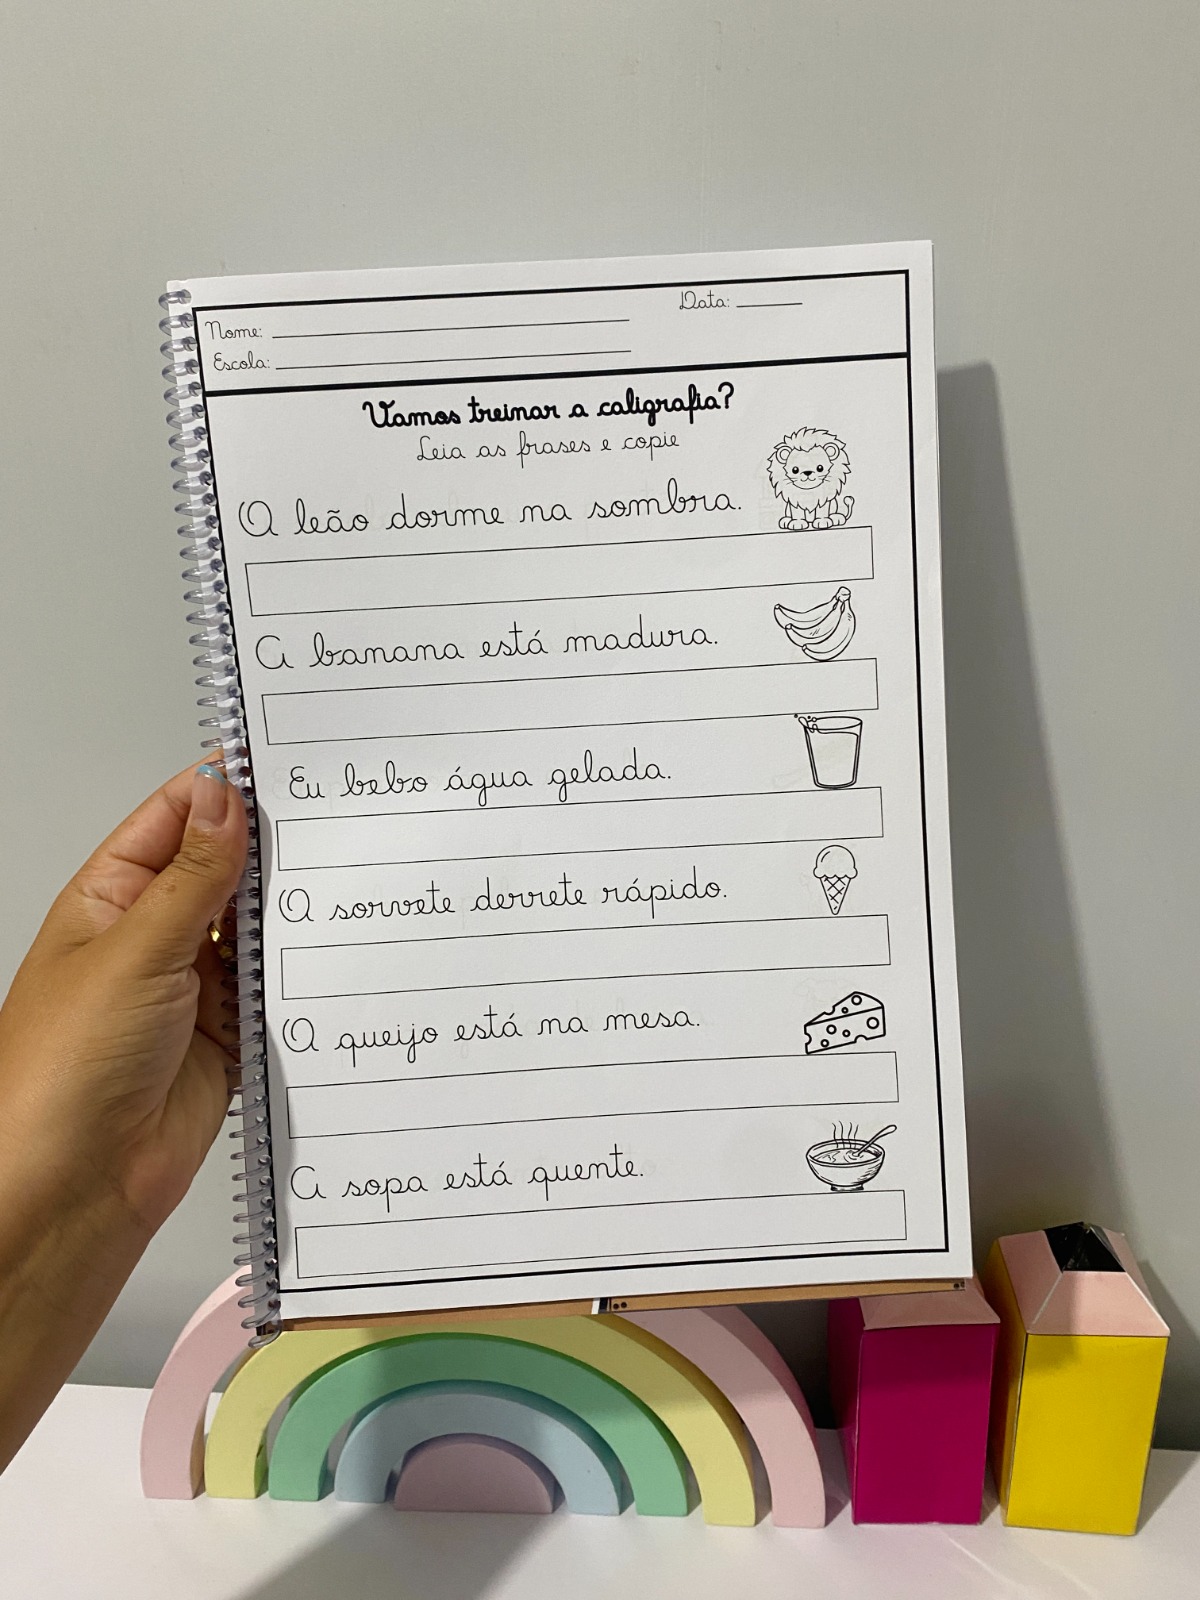 Nome:
Data:
Escola:
Vamos treinar a caligrafia?
Leia as frases e copie
O leão dorme na sombra.
A banana está madura.
Eu bebo água gelada.
O sorvete derrete rápido.
O queijo está na mesa.
A sopa está quente.